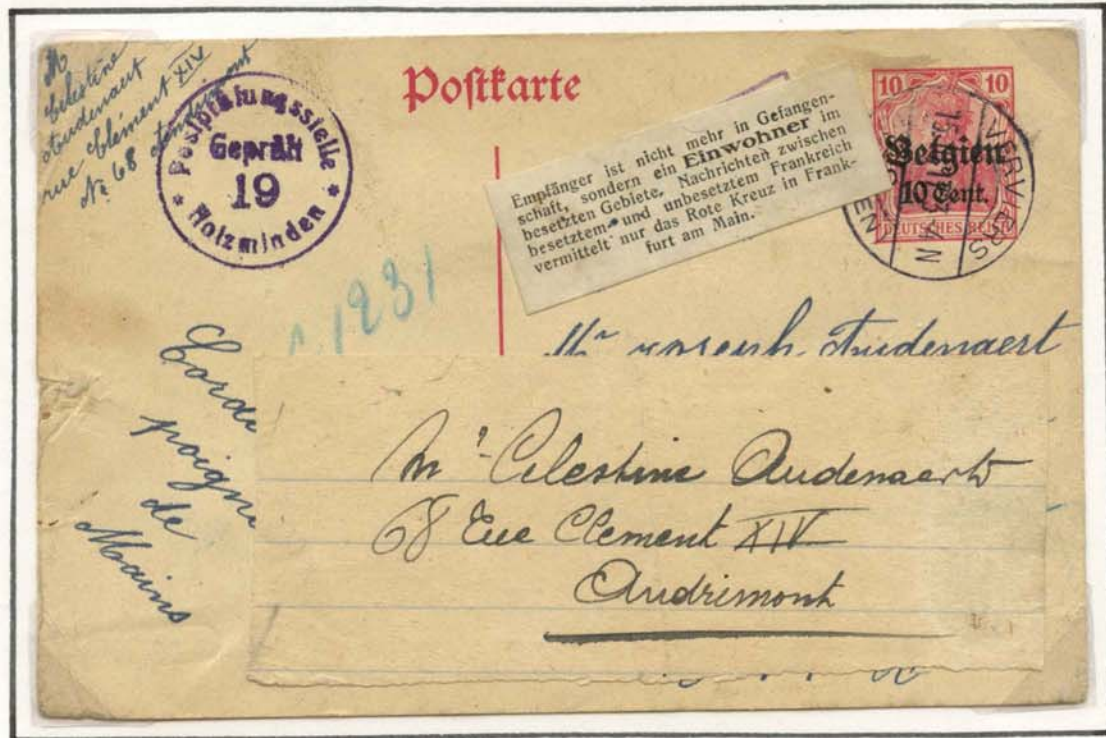 M
Celestine
Audenaert
rue Clément XIV
№ 68
Postprüfungsstelle
Geprüft
19
Holzminden
Postkarte
Empfänger ist nicht mehr in Gefangen-
schaft, sondern ein Einwohner im
besetzten Gebiete. Nachrichten zwischen
besetztem und unbesetztem Frankreich
vermittelt nur das Rote Kreuz in Frank-
furt am Main.
10 10
Belgien
10 Cent.
DEUTSCHES REICH
VERVIERS
1231
Mr Audenaert
Corde
poigne
de
Mains
Mr Celestine Audenaert
68 Rue Clement XIV
Andrimont